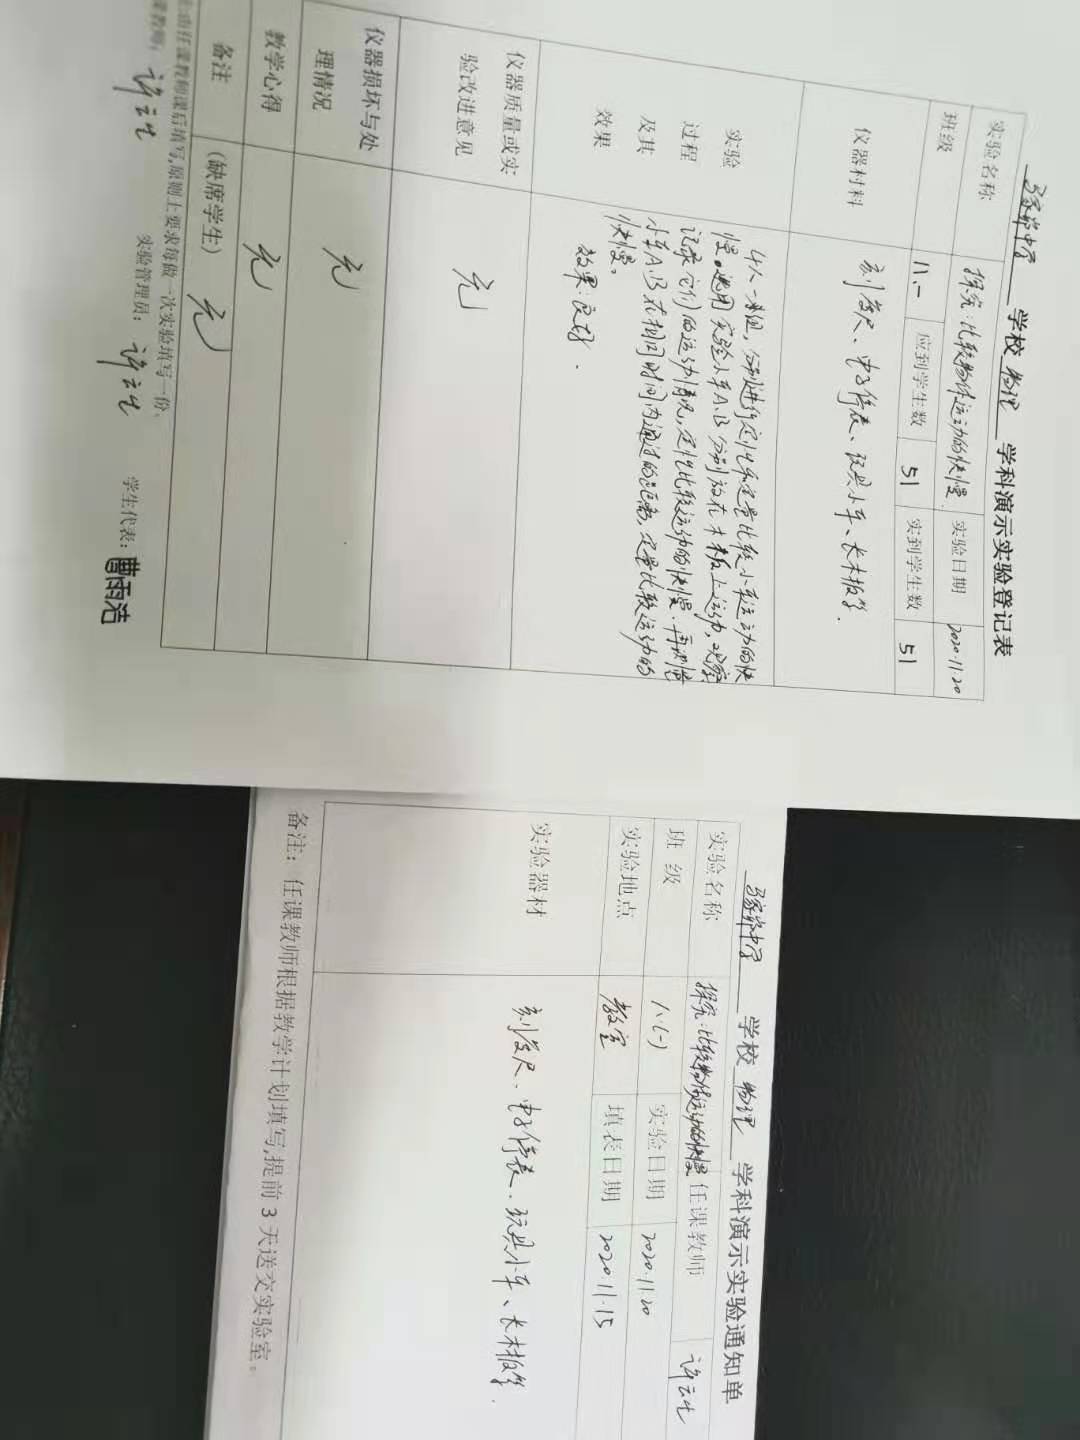 中学 学校 物理 学科演示实验登记表
实验名称 探究：比较物体运动的快慢 实验日期 2020.11.20
班级 八.一 应到学生数 51 实到学生数 51
仪器材料 刻度尺、电子停表、玩具小车、长木板等.
实验
过程
及其
效果
4人一组，分别进行定性和定量比较小车运动的快
慢。选用实验小车A.B分别放在木板上运动，观察
记录它们的运动情况，定性比较运动的快慢.再测量
小车A.B在相同时间内通过的距离，定量比较运动的
快慢。
效果：良好.
仪器质量或实
验改进意见 无
仪器损坏与处
理情况 无
教学心得 无
备注 (缺席学生) 无
由任课教师课后填写,原则上要求每做一次实验填写一份。
课教师： 实验管理员： 学生代表：曹雨浩
中学 学校 物理 学科演示实验通知单
实验名称 探究：比较物体运动的快慢 任课教师
班 级 八(一) 实验日期 2020.11.20
实验地点 教室 填表日期 2020.11.15
实验器材 刻度尺、电子停表、玩具小车、长木板等.
备注：任课教师根据教学计划填写,提前3天送交实验室。